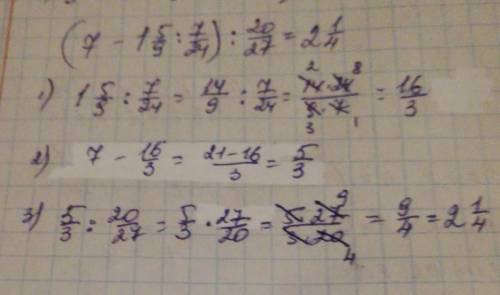 (7 - 1 5/9 : 7/24) : 20/27 = 2 1/4
1) 1 5/9 : 7/24 = 14/9 : 7/24 = 14·24/9·7 = 16/3
2) 7 - 16/3 = 21-16/3 = 5/3
3) 5/3 : 20/27 = 5/3 · 27/20 = 5·27/3·20 = 9/4 = 2 1/4